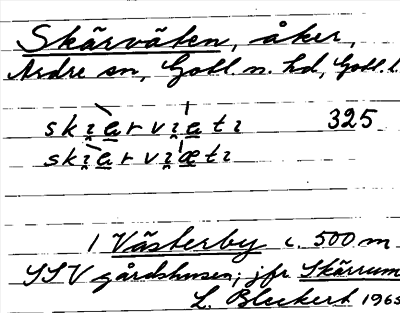 Skärväten, åker,
Ardre sn, Gotl. n. hd, Gotl. l.
skı̯arvı̯atı 325
skı̯arvı̯ætı
I Västerby c. 500 m
SSV gårdshusen; jfr Skärrum
L. Bleckert 1965